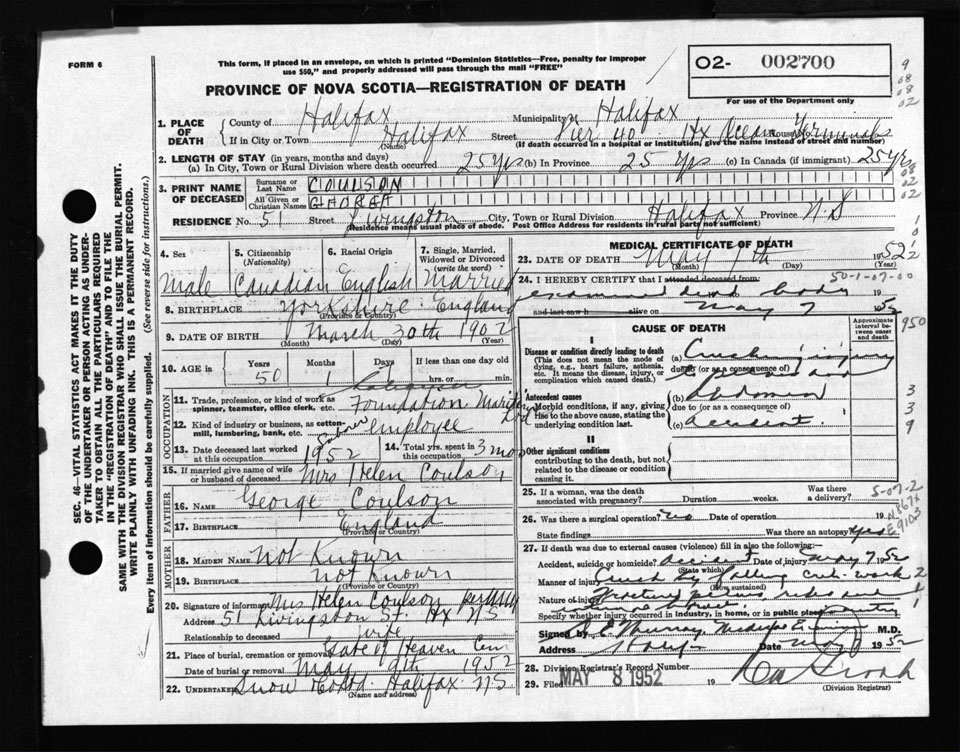 FORM 6
This form, if placed in an envelope, on which is printed "Dominion Statistics—Free, penalty for improper
use $50," and properly addressed will pass through the mail "FREE"
02- 002700
For use of the Department only
PROVINCE OF NOVA SCOTIA—REGISTRATION OF DEATH
9
08
08
02
1. PLACE OF DEATH
County of Halifax Municipality of Halifax
If in City or Town Halifax (Name) Street Pier 40 Hx Ocean Terminals House No.
(If death occurred in a hospital or institution, give the name instead of street and number)
2. LENGTH OF STAY (in years, months and days)
(a) In City, Town or Rural Division where death occurred 25 yrs (b) In Province 25 yrs (c) In Canada (if immigrant) 25 yrs
3. PRINT NAME OF DECEASED
Surname or Last Name COULSON
All Given or Christian Names GEORGE
08
02
02
RESIDENCE No. 51 Street Livingston City, Town or Rural Division Halifax Province N.S
Residence means usual place of abode. Post Office Address for residents in rural parts not sufficient)
4. Sex Male
5. Citizenship (Nationality) Canadian
6. Racial Origin English
7. Single, Married, Widowed or Divorced (write the word) Married
8. BIRTHPLACE Yorkshire England
(Province or Country)
9. DATE OF BIRTH March 30th 1902
(Month) (Day) (Year)
10. AGE is Years 50 Months 1 Days If less than one day old hrs. or min.
OCCUPATION
11. Trade, profession, or kind of work as spinner, teamster, office clerk, etc. Labourer
Foundation Maritime Ltd
12. Kind of industry or business, as cotton-mill, lumbering, bank, etc. employee
13. Date deceased last worked at this occupation 1952
14. Total yrs. spent in this occupation 3 mos
15. If married give name of wife or husband of deceased Mrs Helen Coulson
FATHER
16. NAME George Coulson
17. BIRTHPLACE England
(Province or Country)
MOTHER
18. MAIDEN NAME Not Known
19. BIRTHPLACE Not Known
(Province or Country)
20. Signature of informant Mrs Helen Coulson
Address 51 Livingston St. Hx NS
Relationship to deceased wife
21. Place of burial, cremation or removal Gate of Heaven Cem
Date of burial or removal May 9th 1952
22. UNDERTAKER Snow Co Ltd. Halifax NS
(Name and address)
MEDICAL CERTIFICATE OF DEATH
23. DATE OF DEATH May 7th 1952
(Month) (Day) (Year)
24. I HEREBY CERTIFY that I attended deceased from:
50-1-07-00
examined dead body 19
and last saw h alive on May 7 1952
CAUSE OF DEATH
Approximate interval between onset and death
950
I
Disease or condition directly leading to death
(This does not mean the mode of dying, e.g., heart failure, asthenia, etc. It means the disease, injury, or complication which caused death.)
(a) Crushing injury
due to (or as a consequence of)
Antecedent causes
Morbid conditions, if any, giving rise to the above cause, stating the underlying condition last.
(b) abdomen
due to (or as a consequence of)
(c) accident.
3
3
9
II
Other significant conditions
contributing to the death, but not related to the disease or condition causing it.
25. If a woman, was the death associated with pregnancy? Duration weeks. Was there a delivery?
5-07-2
26. Was there a surgical operation? no Date of operation 19
State findings Was there an autopsy?
N867
E9103
27. If death was due to external causes (violence) fill in also the following:—
Accident, suicide or homicide? accident Date of injury May 7, 1952
(State which)
Manner of injury crush by falling
(How sustained)
Nature of injury Fracture pelvis, ribs and
internal
Specify whether injury occurred in industry, in home, or in public place industry
Signed by Murray, Medical Examiner M.D.
Address Halifax Date May 1952
28. Division Registrar's Record Number
29. Filed MAY 8 1952 19
(Division Registrar)
SEC. 46—VITAL STATISTICS ACT MAKES IT THE DUTY
OF THE UNDERTAKER OR PERSON ACTING AS UNDER-
TAKER TO OBTAIN ALL THE PARTICULARS REQUIRED
IN THE "REGISTRATION OF DEATH" AND TO FILE THE
SAME WITH THE DIVISION REGISTRAR WHO SHALL ISSUE THE BURIAL PERMIT.
WRITE PLAINLY WITH UNFADING INK. THIS IS A PERMANENT RECORD.
Every item of information should be carefully supplied. (See reverse side for instructions.)